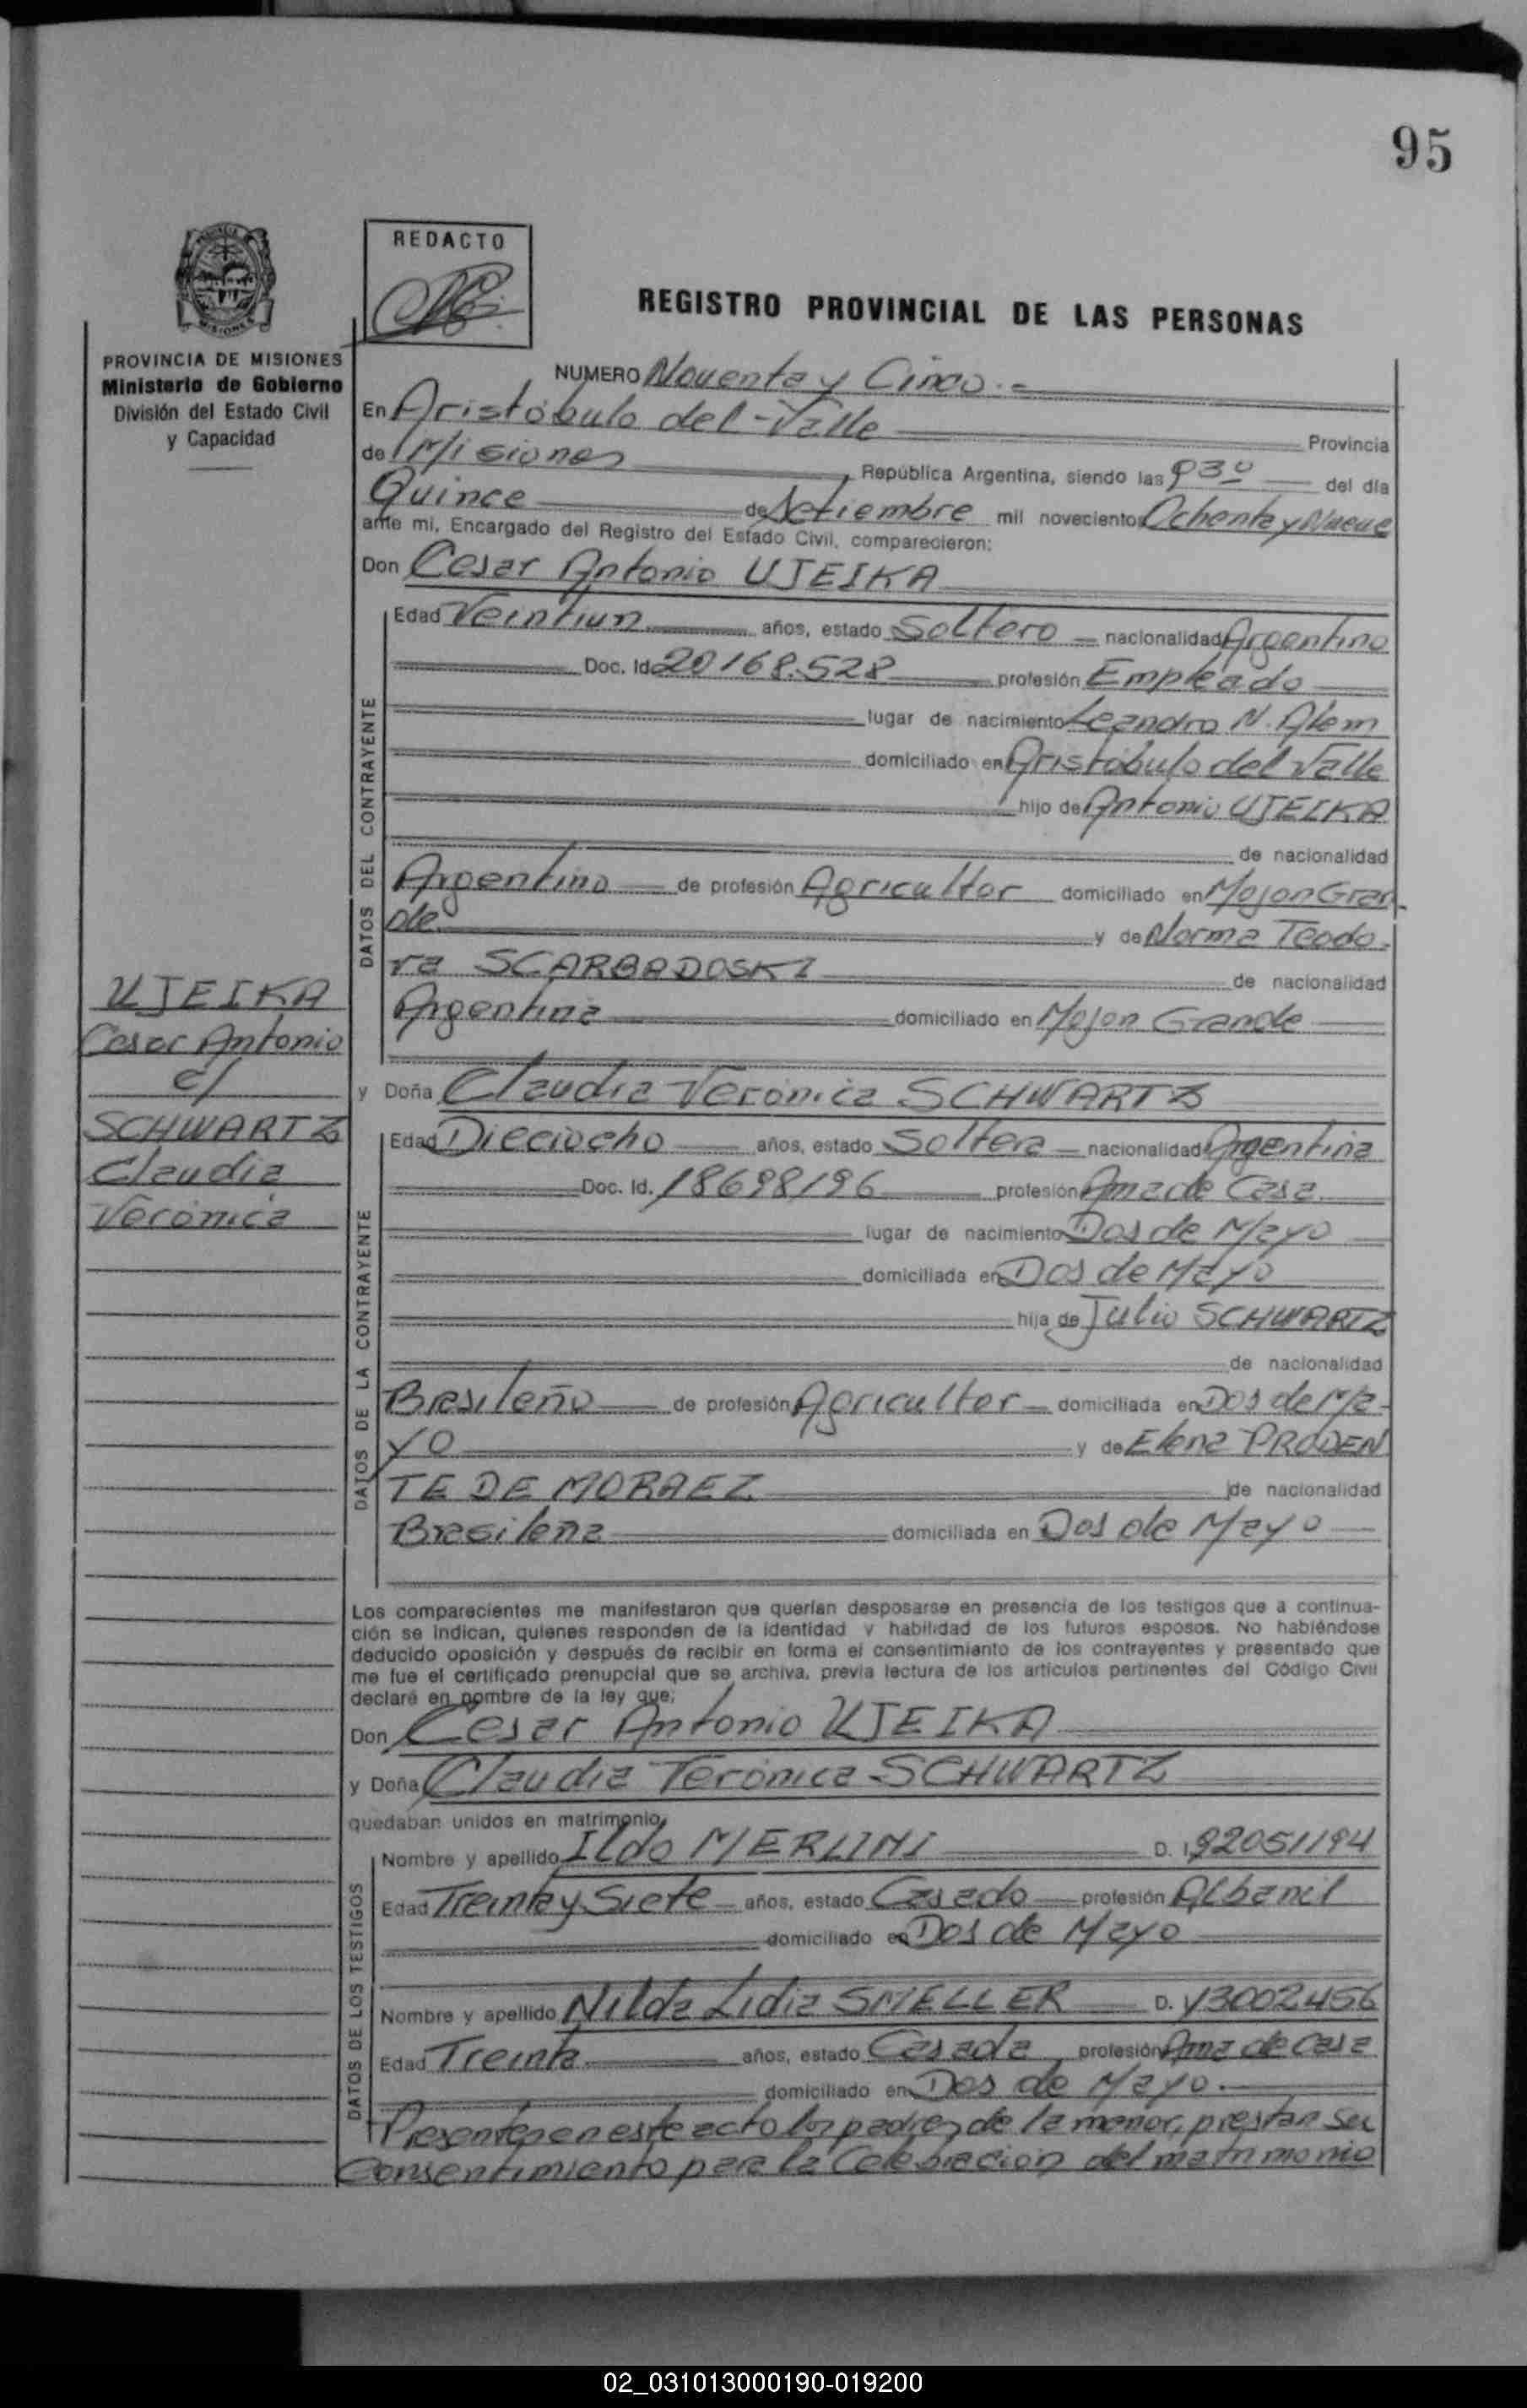 95
REDACTO
REGISTRO PROVINCIAL DE LAS PERSONAS
PROVINCIA DE MISIONES
Ministerio de Gobierno
División del Estado Civil
y Capacidad
NUMERO Noventa y Cinco.-
En Aristóbulo del Valle Provincia
de Misiones República Argentina, siendo las 930 del día
Quince de Setiembre mil novecientos Ochenta y Nueve
ante mi, Encargado del Registro del Estado Civil, comparecieron:
Don Cesar Antonio UJEIKA
Edad Veintiun años, estado Soltero nacionalidad Argentino
Doc. Id. 20168.528 profesión Empleado
lugar de nacimiento Leandro N. Alem
domiciliado en Aristóbulo del Valle
hijo de Antonio UJEIKA
DATOS DEL CONTRAYENTE
de nacionalidad
Argentino de profesión Agricultor domiciliado en Mojon Gran
de y de Norma Teodo-
ra SCARBADOSKI de nacionalidad
Argentina domiciliado en Mojon Grande
UJEIKA
Cesar Antonio
c/
SCHWARTZ
Claudia
Verónica
y Doña Claudia Verónica SCHWARTZ
Edad Dieciocho años, estado Soltera nacionalidad Argentina
Doc. Id. 18698196 profesión Ama de Casa
lugar de nacimiento Dos de Mayo
domiciliada en Dos de Mayo
hija de Julio SCHWARTZ
DATOS DE LA CONTRAYENTE
de nacionalidad
Brasileño de profesión Agricultor domiciliada en Dos de Ma-
yo y de Elena PRODEN
TE DE MORAEZ de nacionalidad
Brasileña domiciliada en Dos de Mayo
Los comparecientes me manifestaron que querían desposarse en presencia de los testigos que a continua-
ción se indican, quienes responden de la identidad y habilidad de los futuros esposos. No habiéndose
deducido oposición y después de recibir en forma el consentimiento de los contrayentes y presentado que
me fue el certificado prenupcial que se archiva, previa lectura de los artículos pertinentes del Código Civil
declaré en nombre de la ley que:
Don Cesar Antonio UJEIKA
y Doña Claudia Verónica SCHWARTZ
quedaban unidos en matrimonio,
Nombre y apellido Ildo MERLINI D. I 92051194
Edad Treinta y Siete años, estado Casado profesión Albanil
domiciliado en Dos de Mayo
DATOS DE LOS TESTIGOS
Nombre y apellido Nilda Lidia SMELLER D. 13002456
Edad Treinta años, estado Casada profesión Ama de Casa
domiciliado en Dos de Mayo.
Presentes en este acto los padres de la menor, prestan su
Consentimiento para la Celebracion del matrimonio
02_031013000190-019200